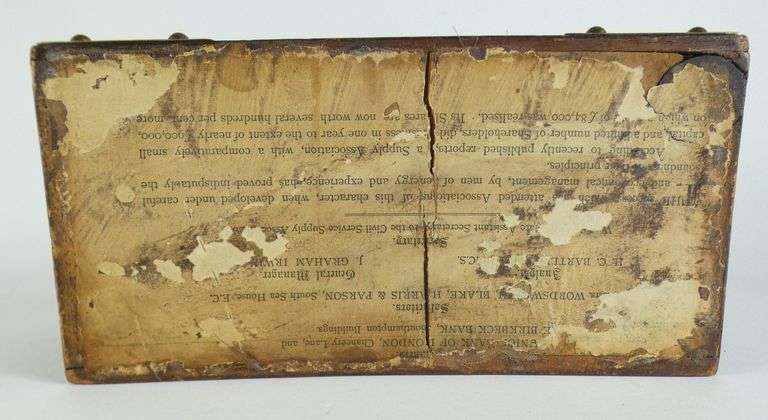 UNION BANK OF LONDON, Chancery Lane, and
BIRKBECK BANK, Southampton Buildings.
Solicitors.
WORDSW BLAKE, HARRIS & PARSON, South Sea House, E.C.
Analyst. General Manager.
H. C. BARTL C.S. J. GRAHAM IRWIN
Secretary.
W. late Assistant Secretary to the Civil Service Supply Asso
THE success which attended Associations of this character, when developed under careful
and economical management, by men of energy and experience, has proved indisputably the
soundness of their principles.
According to recently published reports, a Supply Association, with a comparatively small
capital, and a limited number of Shareholders, did business in one year to the extent of nearly 900,000,
on which of £84,000 was realised. Its Shares are now worth several hundreds per cent. more